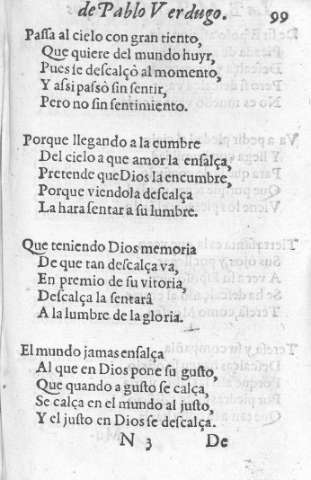 de Pablo Verdugo. 99
Passa al cielo con gran tiento,
Que quiere del mundo huyr,
Pues se descalçò al momento,
Y assi passò sin sentir,
Pero no sin sentimiento.
Porque llegando a la cumbre
Del cielo a que amor la ensalça,
Pretende que Dios la encumbre,
Porque viendola descalça
La hara sentar a su lumbre.
Que teniendo Dios memoria
De que tan descalça va,
En premio de su vitoria,
Descalça la sentarâ
A la lumbre de la gloria.
El mundo jamas ensalça
Al que en Dios pone su gusto,
Que quando a gusto se calça,
Se calça en el mundo al justo,
Y el justo en Dios se descalça.
N 3 De